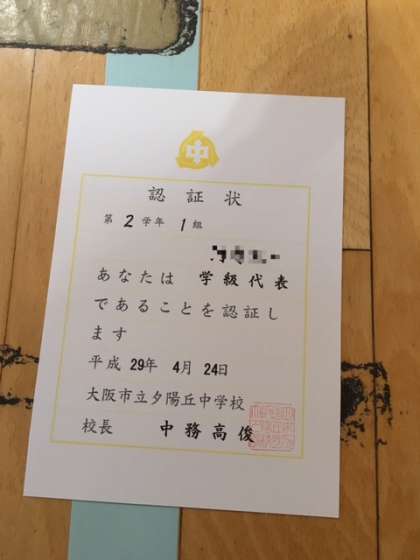 中
認証状
第2学年1組
あなたは 学級代表
であることを認証し
ます
平成29年4月24日
大阪市立夕陽丘中学校
校長 中務高俊